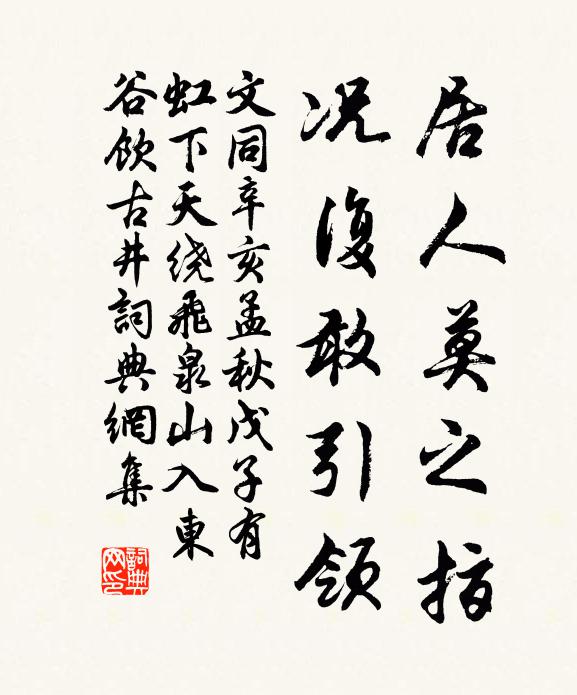 居人莫之指
况復敢引領
文同辛亥孟秋戊子有
虹下天绕飛泉山入東
谷飲古井詞典網集
詞典網印